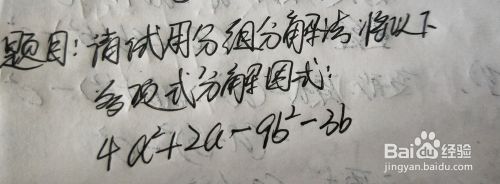 题目:请试用分组分解法将以下
多项式分解因式:
4a²+2a-9b²-3b
Baidu经验
jingyan.baidu.com